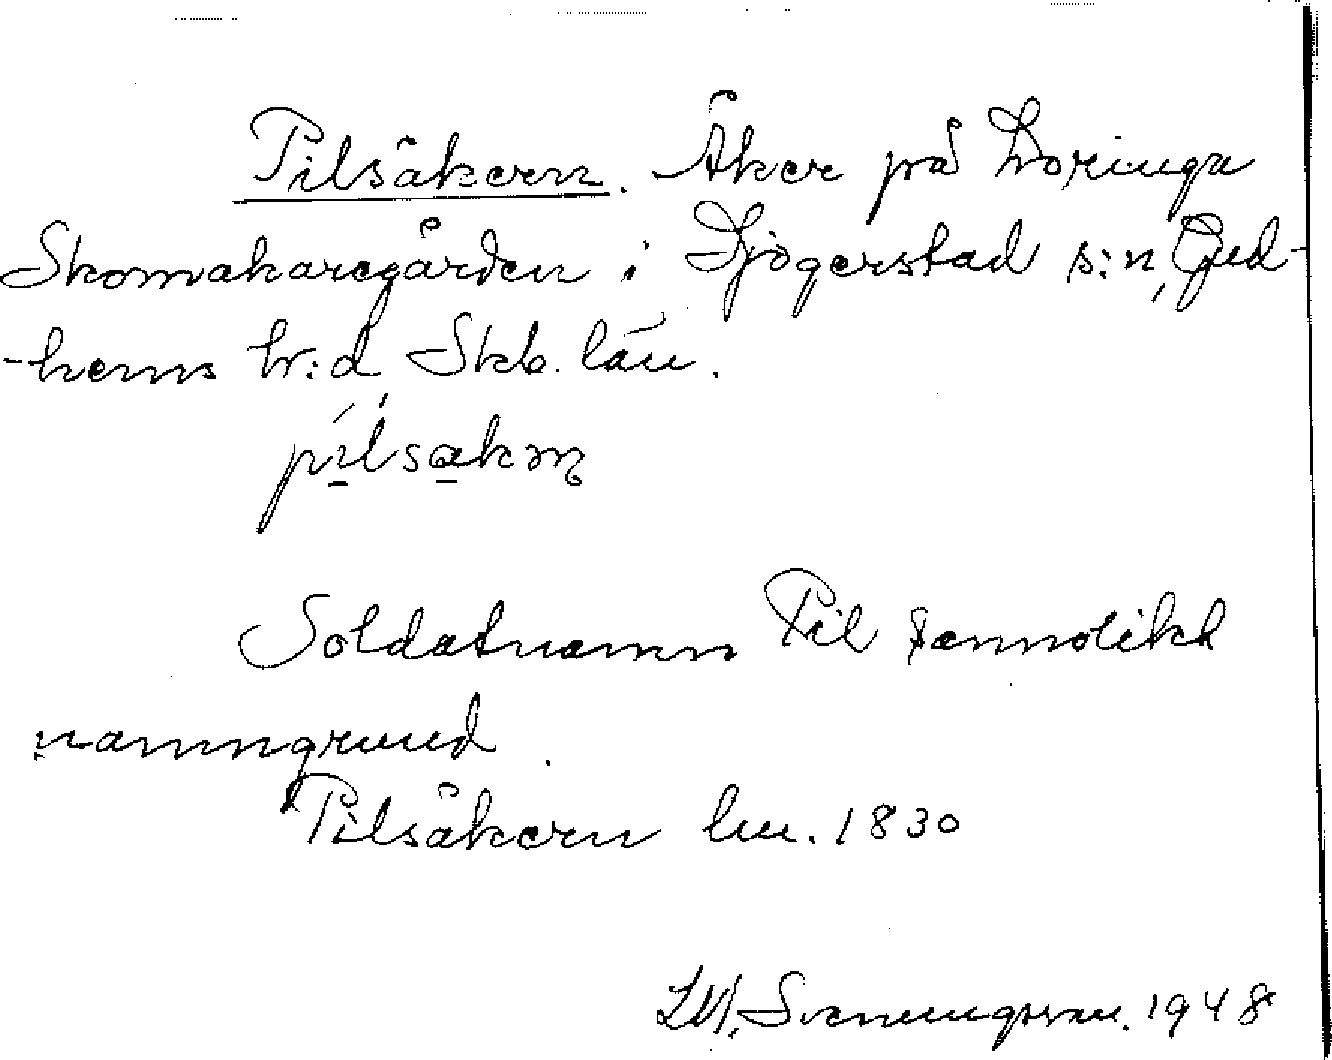 Pilsåkern. Åker på Loringa
Skomakaregården i Sjogerstad s:n, Gud-
-hems hr:d, Skb. län.
pilsakṇ
Soldatnamn Pil sannolikt
namngrund.
Pilsåkern lm. 1830
Svenungsson. 1948